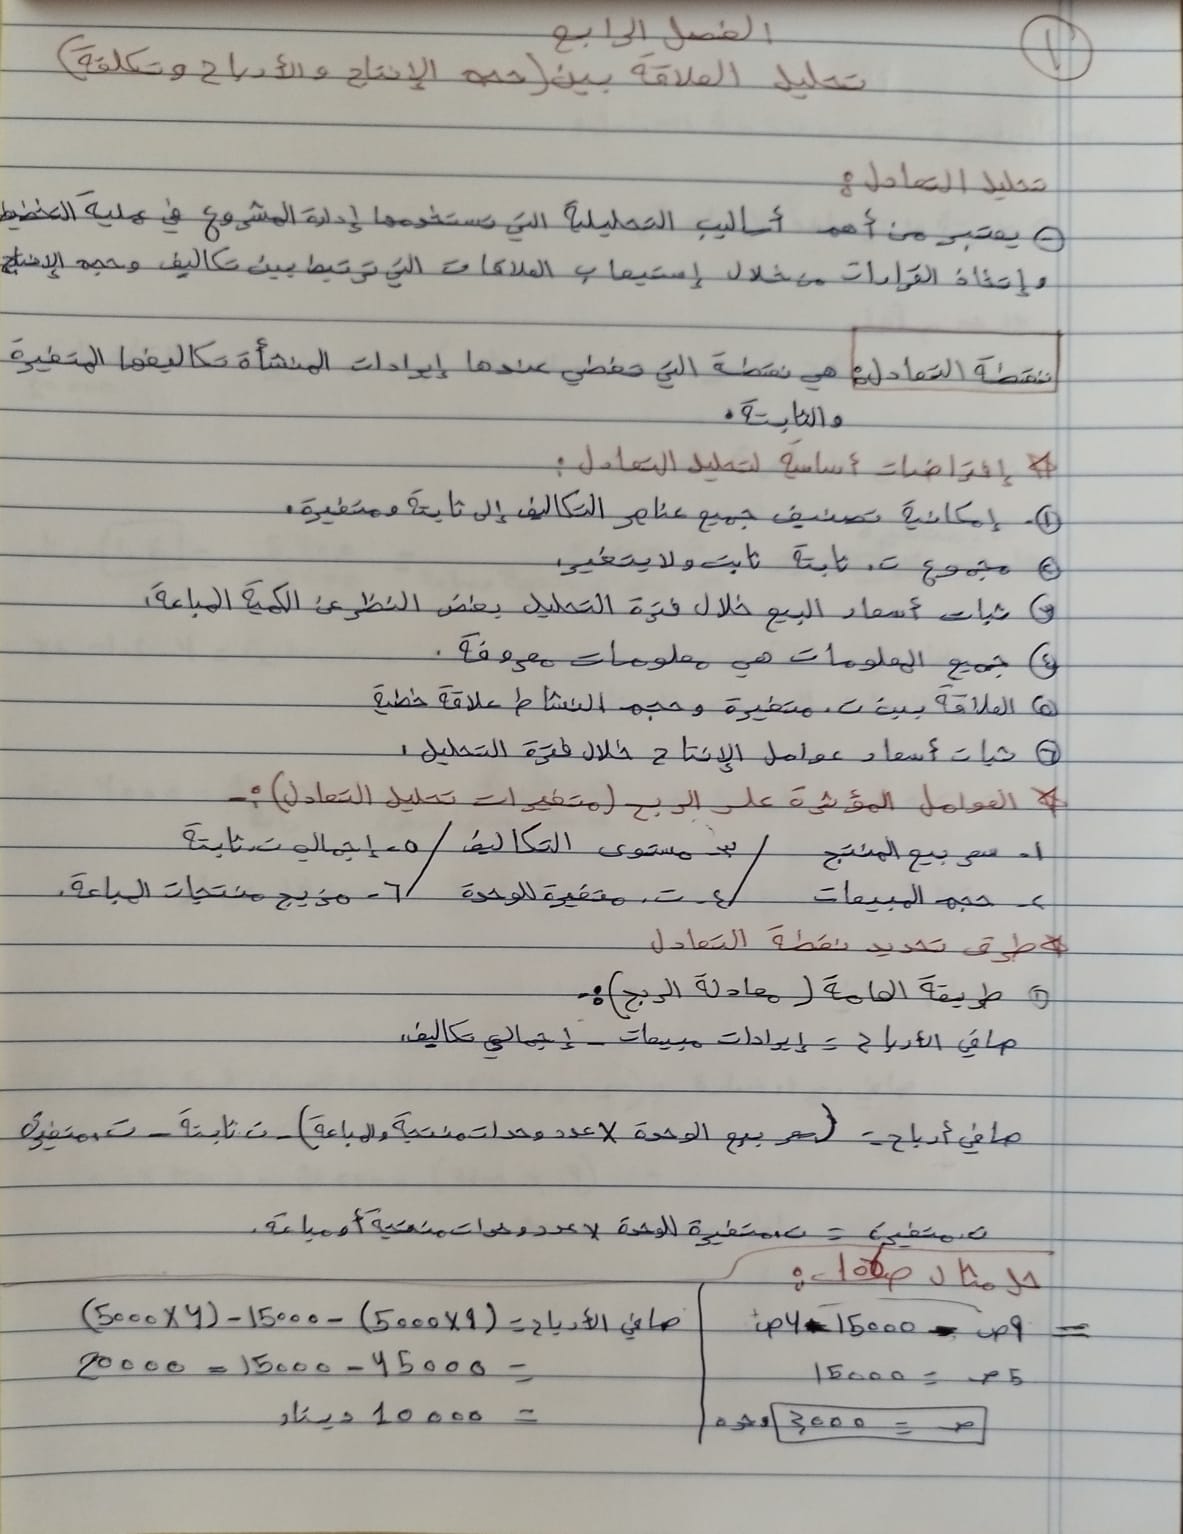 ١
الفصل الرابع
تحليل العلاقة بين (حجم الإنتاج والأرباح وتكلفة)
تحليل التعادل:
- يعتبر من أهم أساليب التحليلية التي تستخدمها إدارة المشروع في عملية التخطيط
وإتخاذ القرارات من خلال إستيعاب العلاقات التي ترتبط بين تكاليف وحجم الإنتاج
نقطة التعادل: هي نقطة التي تغطي عندها إيرادات المنشأة تكاليفها المتغيرة
والثابتة.
* إفتراضات أساسة لتحليل التعادل:
١- إمكانية تصنيف جميع عناصر التكاليف إلى ثابتة ومتغيرة.
٢ مجموع ت. ثابتة ثابت ولا يتغير.
٣ ثبات أسعار البيع خلال فترة التحليل بغض النظر عن الكمية المباعة.
٤ جميع المعلومات هي معلومات معروفة.
٥ العلاقة بين ت. متغيرة وحجم النشاط علاقة خطية
٦ ثبات أسعار عوامل الإنتاج خلال فترة التحليل.
* العوامل المؤثرة على الربح (متغيرات تحليل التعادل):-
١- سعر بيع المنتج / ٣- مستوى التكاليف / ٥- إجمالي ت. ثابتة
٢- حجم المبيعات / ٤- ت. متغيرة للوحدة / ٦- مزيج منتجات المباعة.
* طرق تحديد نقطة التعادل
١ طريقة العامة (معادلة الربح):-
صافي الأرباح = إيرادات مبيعات - إجمالي تكاليف.
صافي أرباح = (سعر بيع الوحدة × عدد وحدات منتجة والمباعة) - ت ثابتة - ت. متغيرة
ت. متغيرة = ت. متغيرة للوحدة × عدد وحدات منتجة أو مباعة.
حل مثال ص
= 9س - 15000 - 4س
5س = 15000
س = 3,000 وحدة
صافي الأرباح = (5000×9) - 15000 - (5000×4)
= 45000 - 15000 - 20000
= 10000 دينار